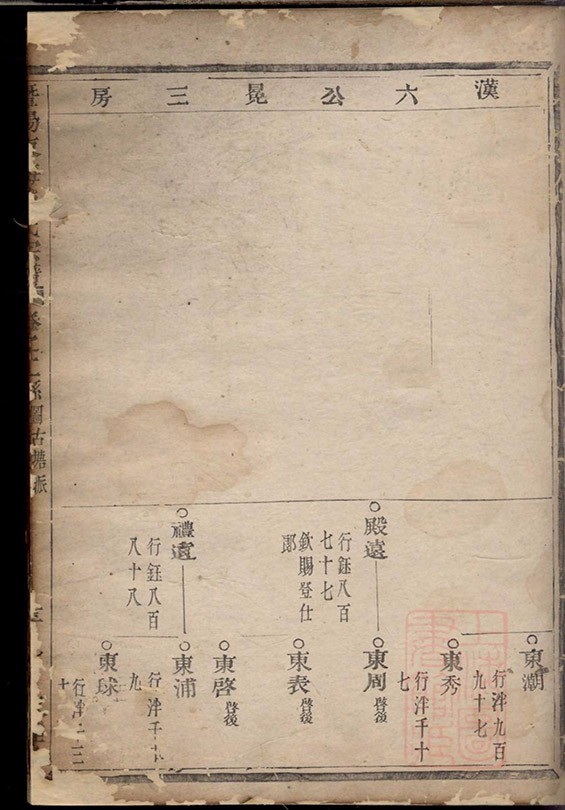 漢六公昆三房
殿遠
行鈺八百
七十七
欽賜登仕
郎
禮遠
行鈺八百
八十八
東潮
行泮九百
九十七
東秀
行泮千十
七
東周
啓後
東表
啓後
東啓
啓後
東浦
行泮千十
九
東球
行泮
十
古塘派